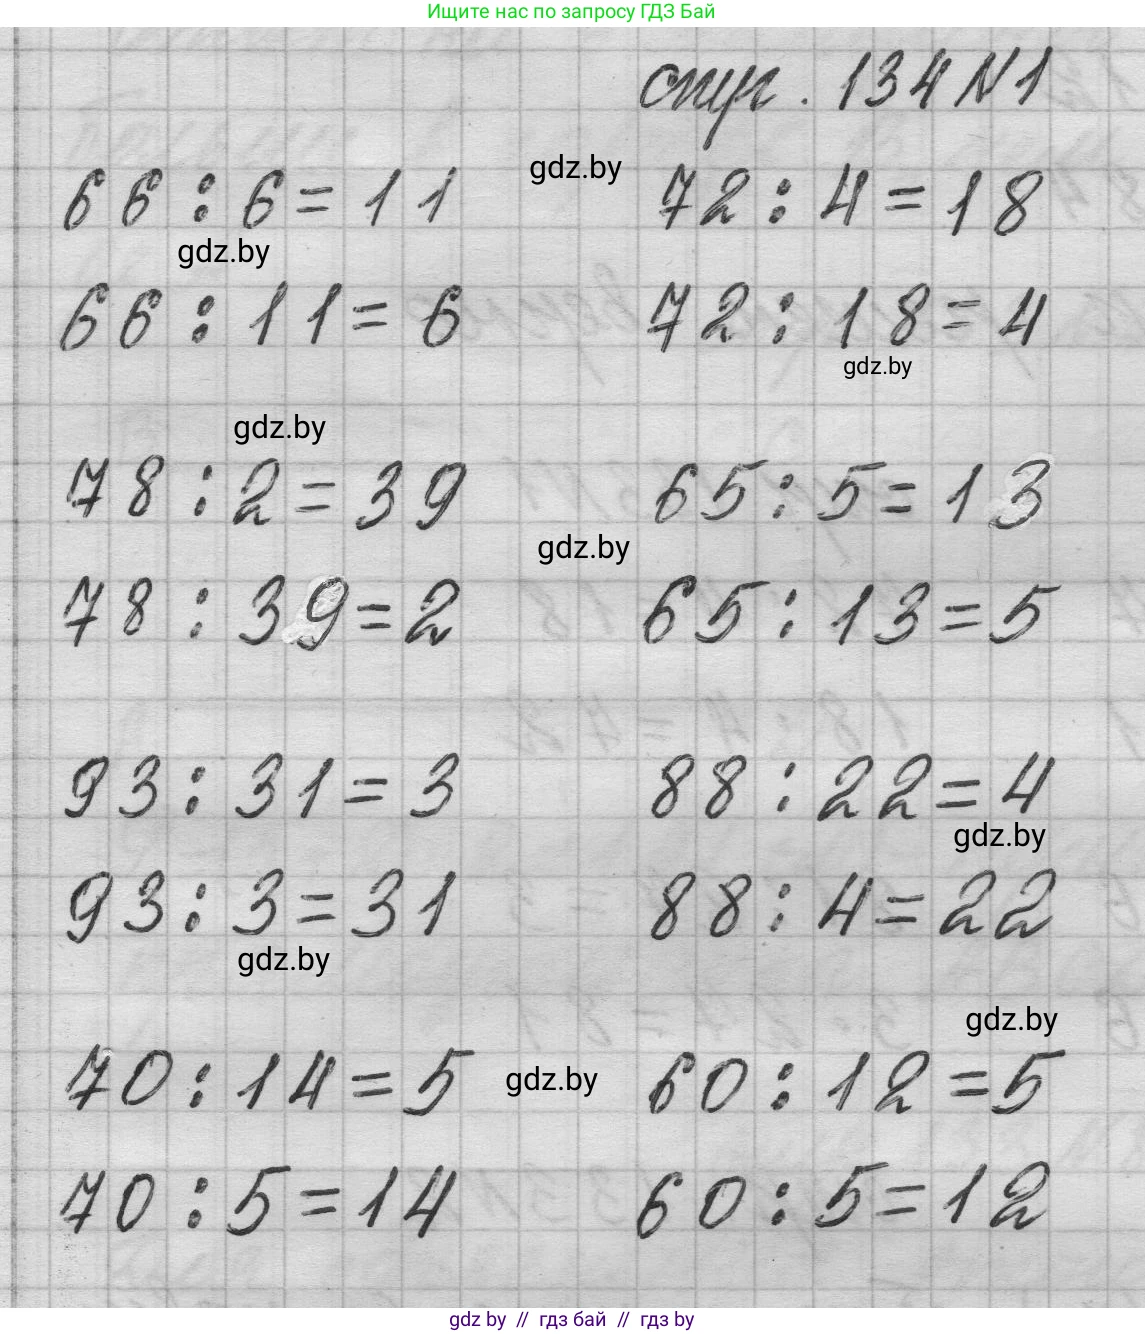 Ищите нас по запросу ГДЗ Бай
стр. 134 N1
gdz.by
66 : 6 = 11 72 : 4 = 18
gdz.by
66 : 11 = 6 72 : 18 = 4
gdz.by
gdz.by
78 : 2 = 39 65 : 5 = 13
gdz.by
78 : 39 = 2 65 : 13 = 5
93 : 31 = 3 88 : 22 = 4
gdz.by
93 : 3 = 31 88 : 4 = 22
gdz.by
gdz.by
70 : 14 = 5 gdz.by 60 : 12 = 5
70 : 5 = 14 60 : 5 = 12
gdz by // гдз бай // гдз by